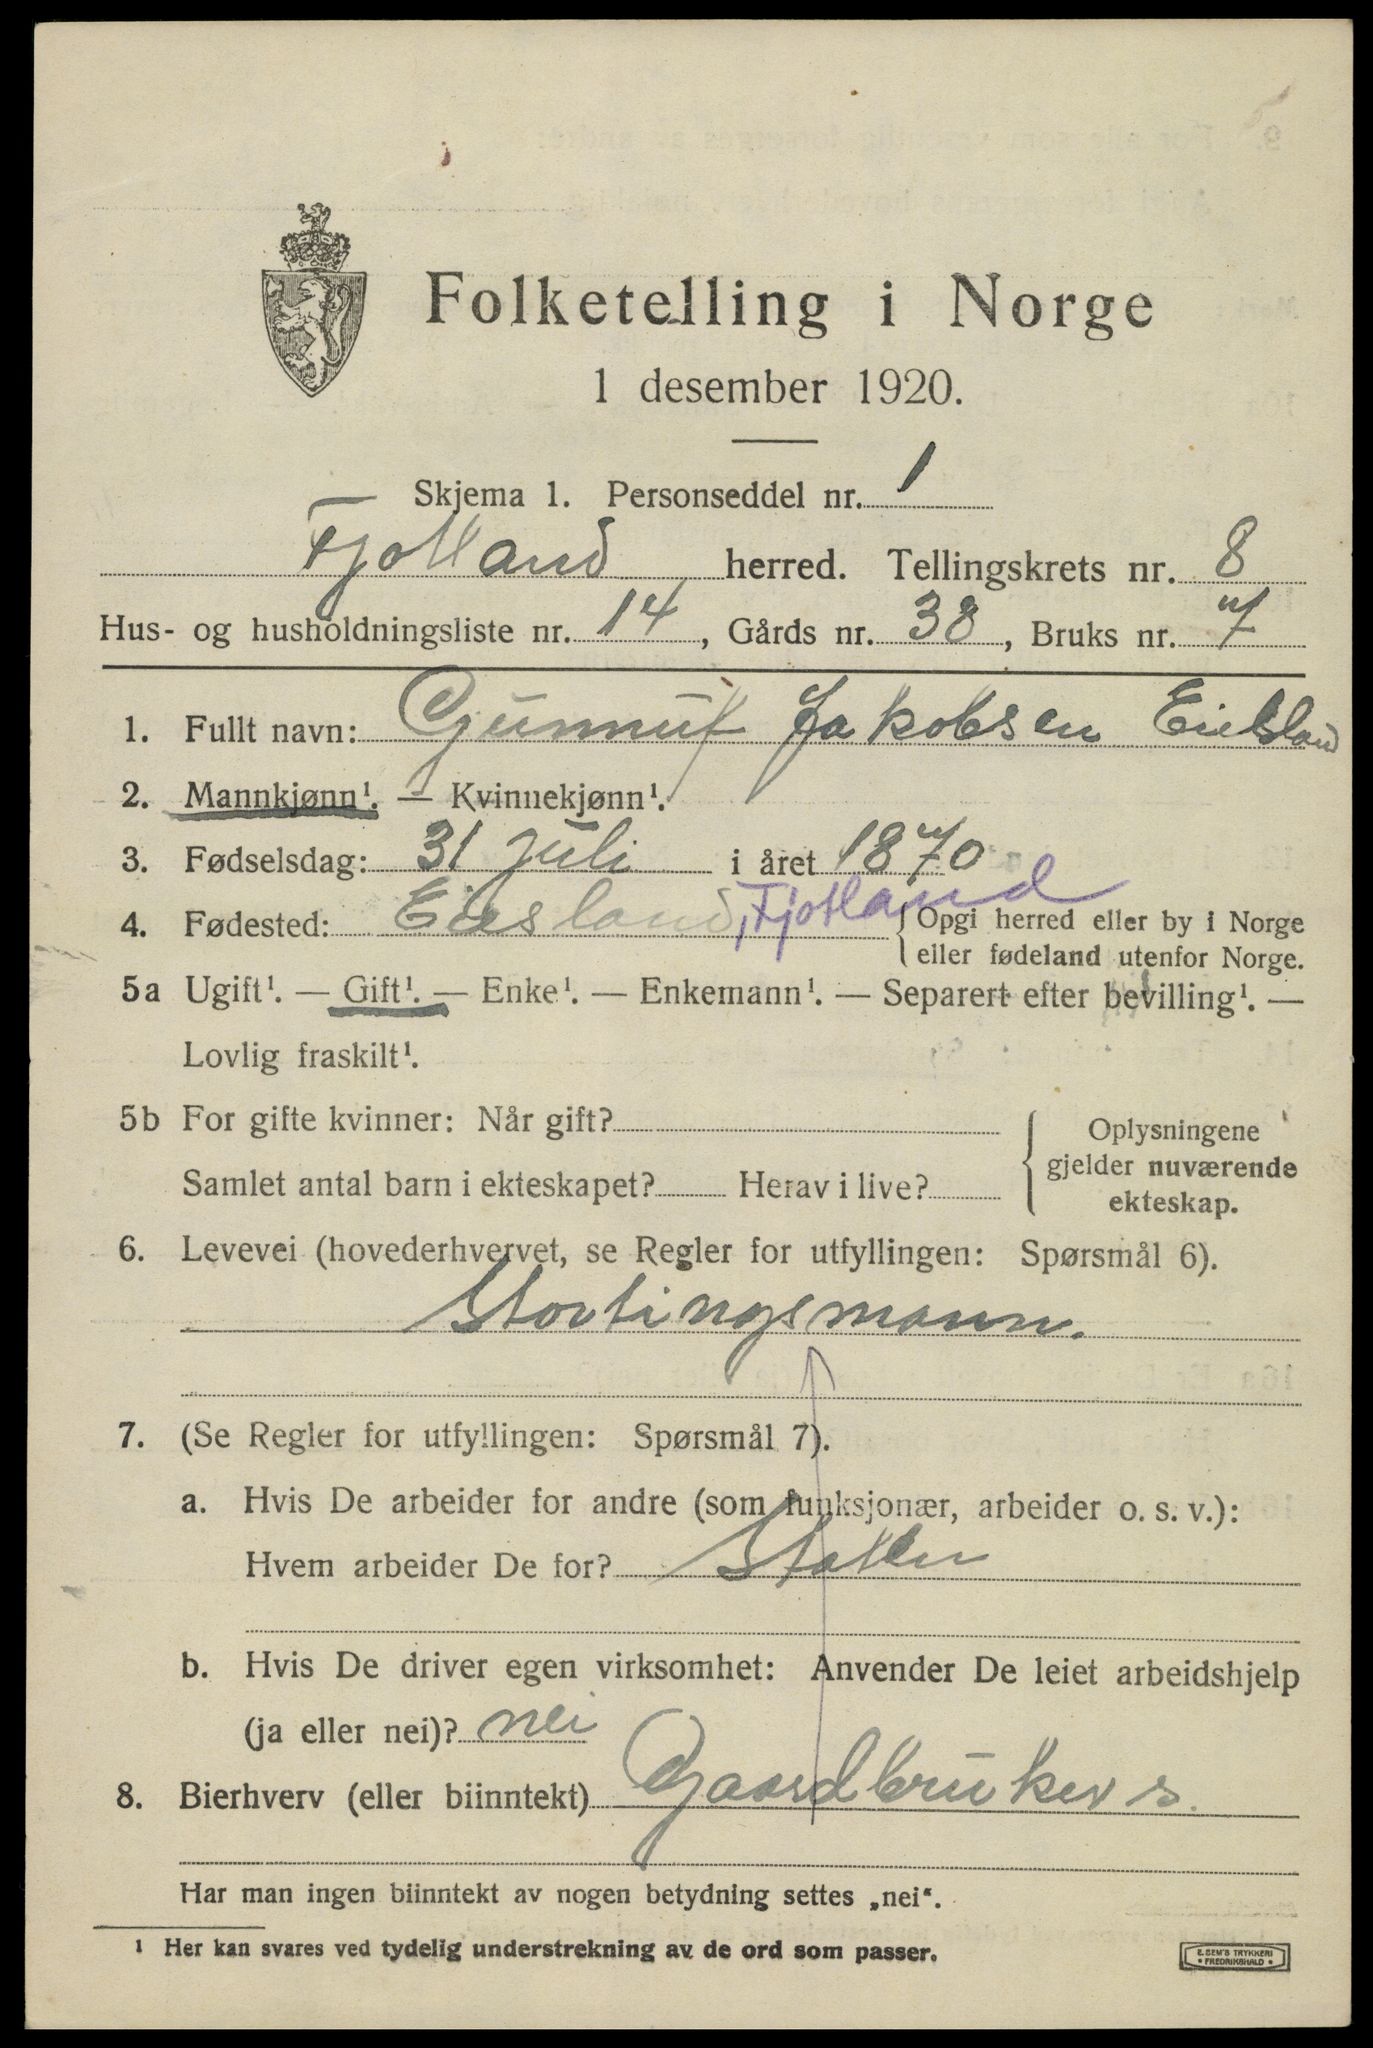 Folketelling i Norge
1 desember 1920.
Skjema 1. Personseddel nr. 1
Fjotland herred. Tellingskrets nr. 8
Hus- og husholdningsliste nr. 14, Gårds nr. 38, Bruks nr. 7
1. Fullt navn: Gunnuf Jakobsen Eiesland
2. Mannkjønn¹. — Kvinnekjønn¹.
3. Fødselsdag: 31 juli i året 1870
4. Fødested: Eiesland, Fjotland { Opgi herred eller by i Norge
eller fødeland utenfor Norge.
5a Ugift¹. — Gift¹. — Enke¹. — Enkemann¹. — Separert efter bevilling¹. —
Lovlig fraskilt¹.
5b For gifte kvinner: Når gift?
Samlet antal barn i ekteskapet? Herav i live?
Oplysningene
gjelder nuværende
ekteskap.
6. Levevei (hovederhvervet, se Regler for utfyllingen: Spørsmål 6).
Stortingsmann.
7. (Se Regler for utfyllingen: Spørsmål 7).
a. Hvis De arbeider for andre (som funksjonær, arbeider o. s. v.):
Hvem arbeider De for? Staten
b. Hvis De driver egen virksomhet: Anvender De leiet arbeidshjelp
(ja eller nei)? nei
8. Bierhverv (eller biinntekt) Gaardbruker s.
Har man ingen biinntekt av nogen betydning settes „nei“.
1 Her kan svares ved tydelig understrekning av de ord som passer.
E. SEM'S TRYKKERI
* FREDRIKSHALD *